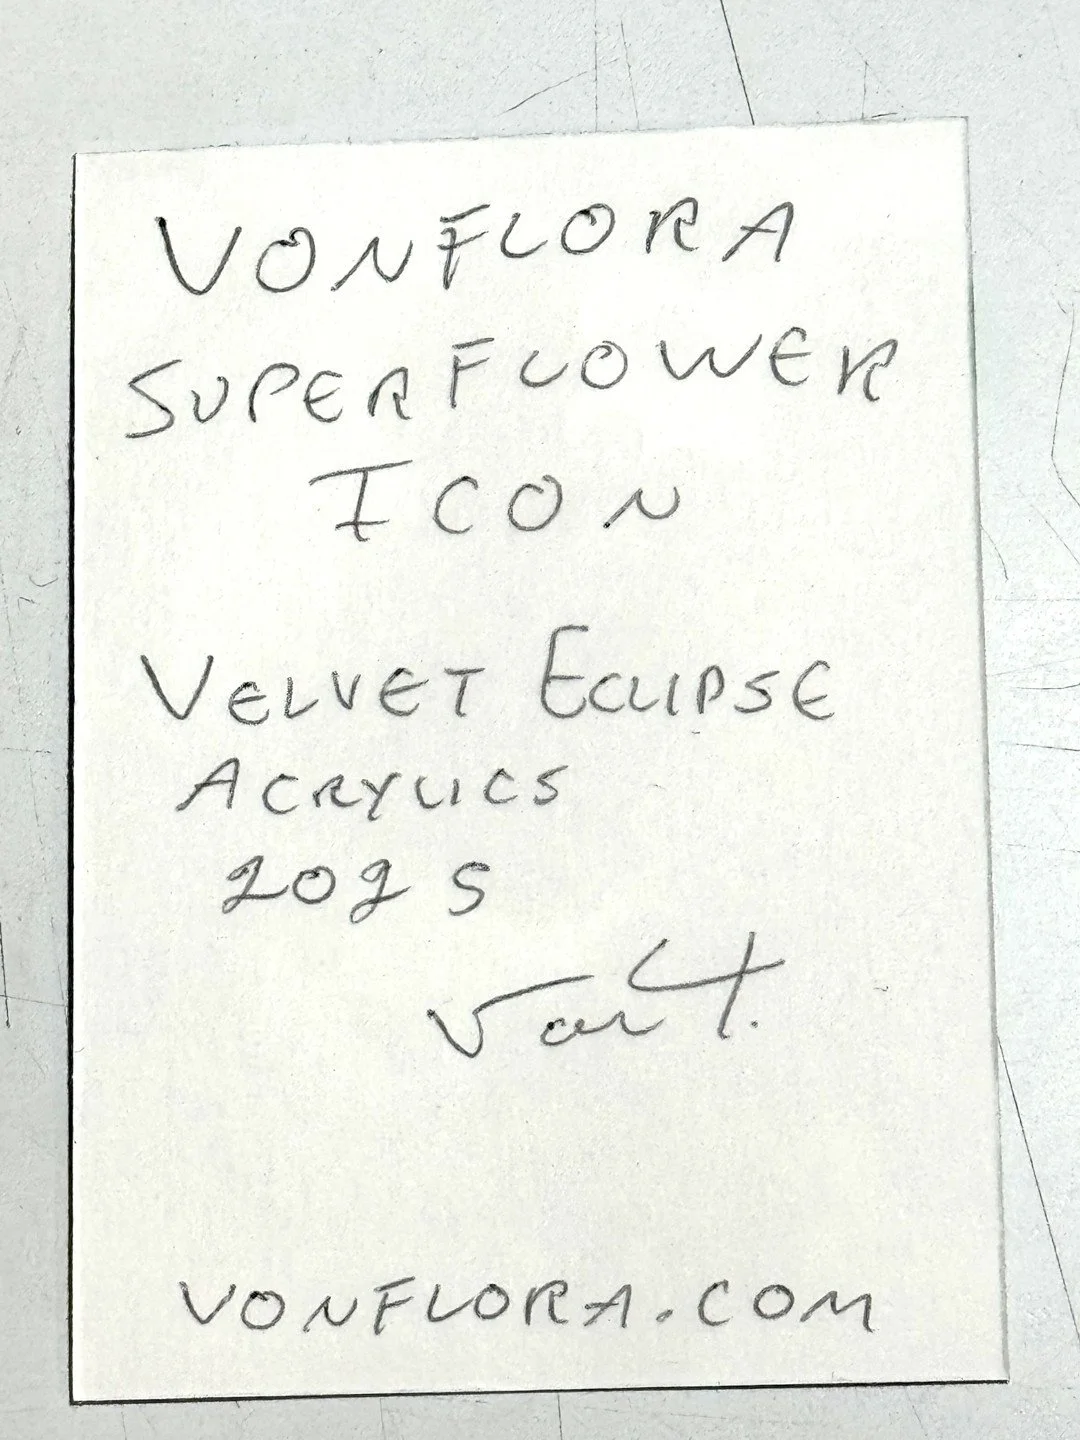 VONFLORA
SUPERFLOWER
ICON
VELVET ECLIPSE
ACRYLICS
2025
VONFLORA.COM